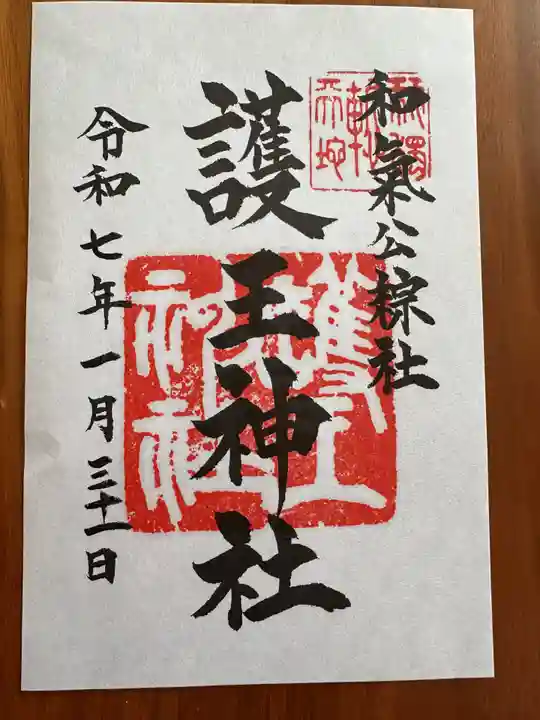 和氣公粽社
護王神社
令和七年一月三十一日
護王神社